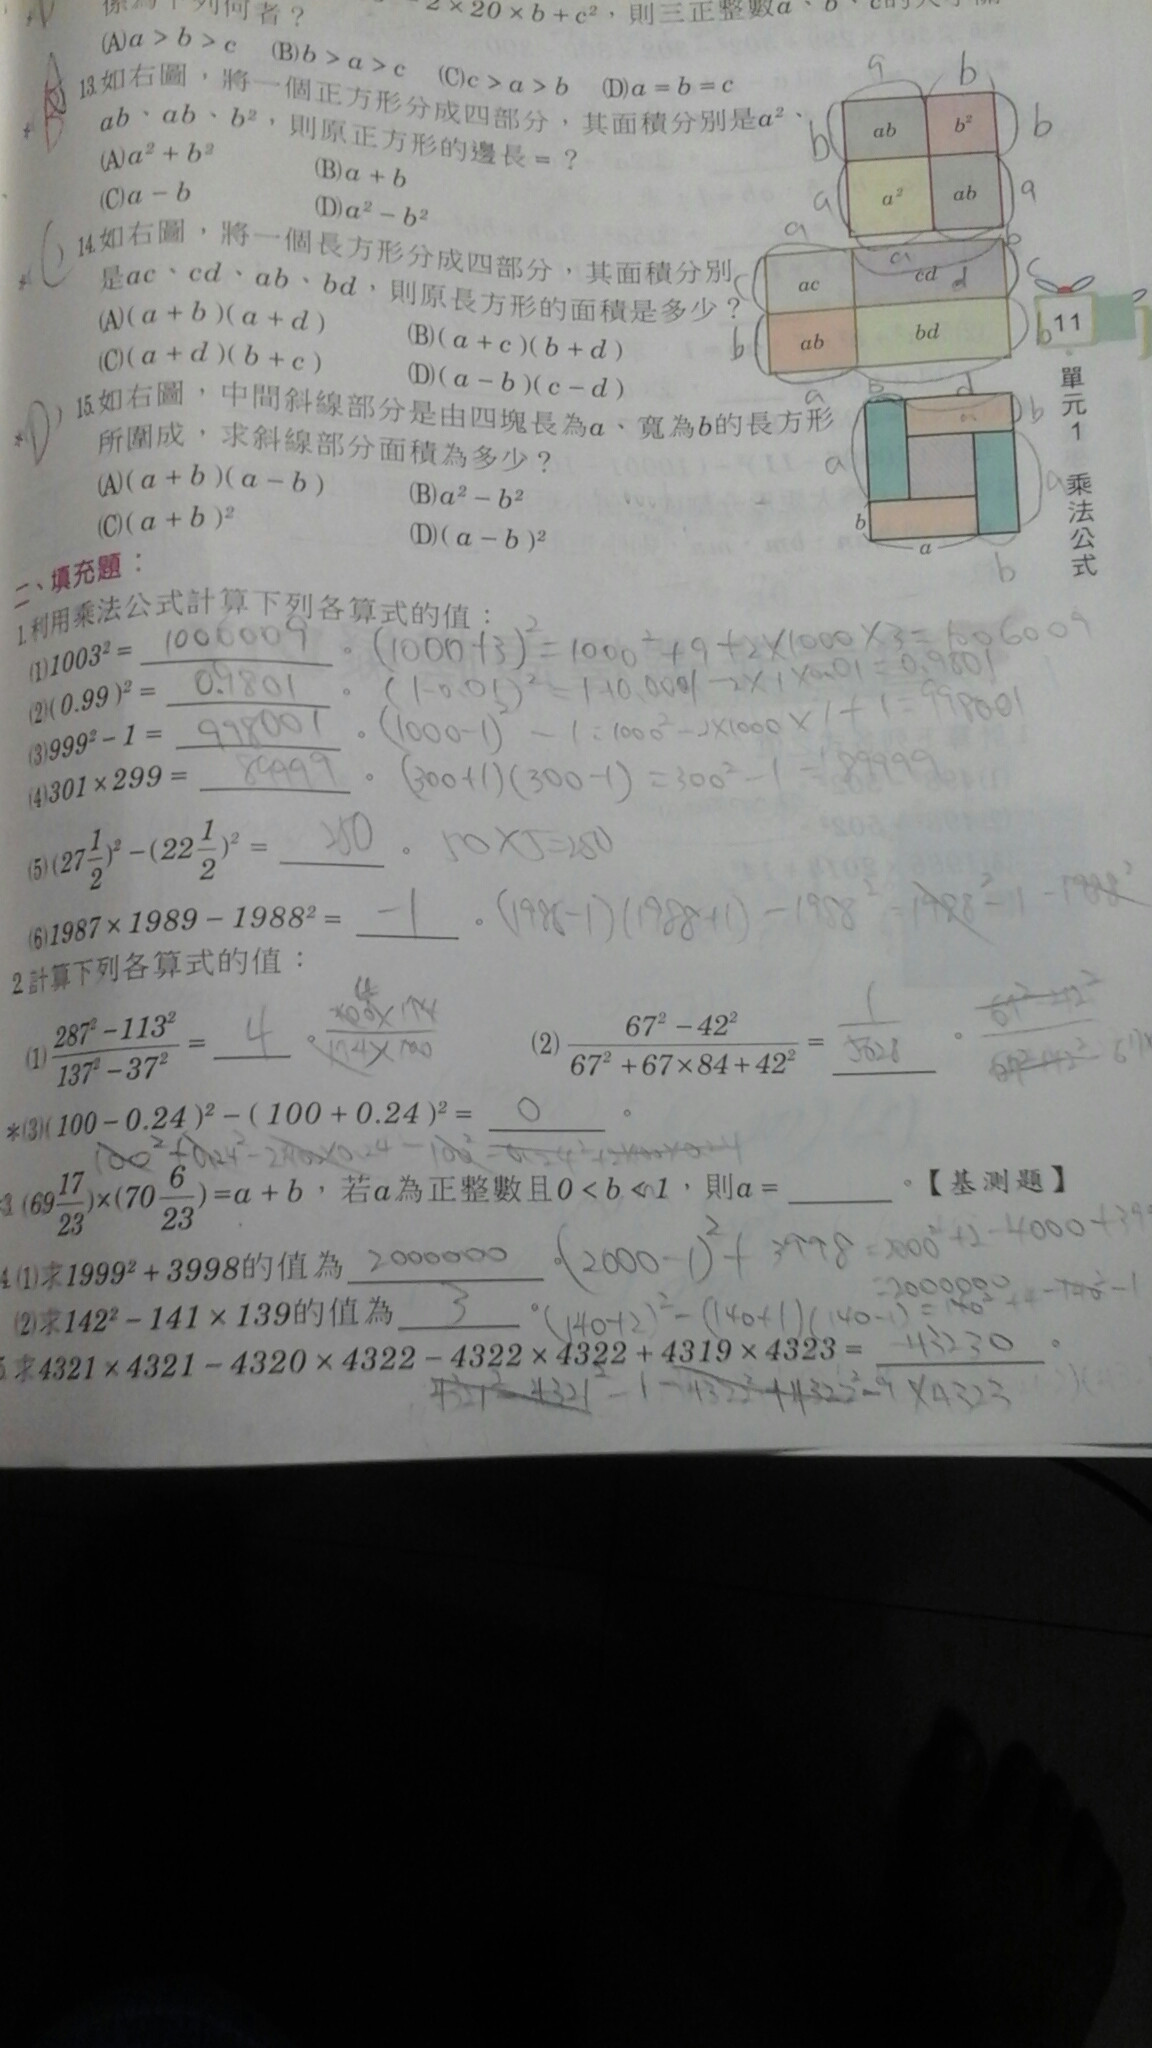 係為下列何者？ 2×20×b+c²，則三正整數a、b、c的大小關
(A)a＞b＞c (B)b＞a＞c (C)c＞a＞b (D)a＝b＝c
13.如右圖，將一個正方形分成四部分，其面積分別是a²、
ab、ab、b²，則原正方形的邊長＝？
(A)a²＋b² (B)a＋b
(C)a－b (D)a²－b²
a b
b ab b² b
a a² ab a
C 14.如右圖，將一個長方形分成四部分，其面積分別
是ac、cd、ab、bd，則原長方形的面積是多少？
(A)(a＋b)(a＋d) (B)(a＋c)(b＋d)
(C)(a＋d)(b＋c) (D)(a－b)(c－d)
a
c ac cd d c
b ab bd b
a
D 15.如右圖，中間斜線部分是由四塊長為a、寬為b的長方形
所圍成，求斜線部分面積為多少？
(A)(a＋b)(a－b) (B)a²－b²
(C)(a＋b)² (D)(a－b)²
a b a
b a b
11
單元1 乘法公式
二、填充題：
1.利用乘法公式計算下列各算式的值：
(1)1003²＝1000009。(1000+3)²=1000²+9+2×1000×3=1006009
(2)(0.99)²＝0.9801。(1-0.01)²=1+0.0001-2×1×0.01=0.9801
(3)999²－1＝998001。(1000-1)²-1=1000²-2×1000×1+1=998001
(4)301×299＝89999。(300+1)(300-1)=300²-1=89999
(5)(27 1/2)²－(22 1/2)²＝250。50×5=250
(6)1987×1989－1988²＝-1。(1988-1)(1988+1)-1988²=1988²-1-1988²
2.計算下列各算式的值：
(1) 287²－113² / 137²－37² ＝4。 400×174 / 174×100
(2) 67²－42² / 67²＋67×84＋42² ＝ 1/5628。 67²-42²
*(3)(100－0.24)²－(100＋0.24)²＝0。
100²+0.24²-2×100×0.24-100²-0.24²+2×100×0.24
*3.(69 17/23)×(70 6/23)＝a＋b，若a為正整數且0＜b＜1，則a＝______。【基測題】
4.(1)求1999²＋3998的值為2000000。(2000-1)²+3998=2000²+2-4000+399
=2000000
(2)求142²－141×139的值為3。(140+2)²-(140+1)(140-1)=140²+4-140²-1
5.求4321×4321－4320×4322－4322×4322＋4319×4323＝-43230。
4321²-4321²-1-4322²+4322²-9×4323